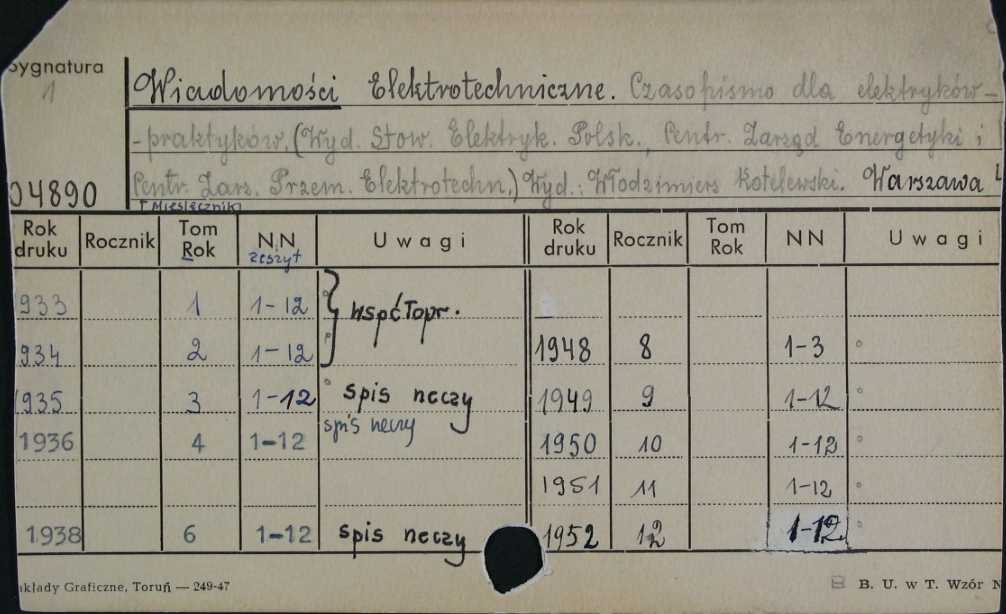 Sygnatura
1
04890
Wiadomości Elektrotechniczne. Czasopismo dla elektryków-
-praktyków. (Wyd. Stow. Elektryk. Polsk., Centr. Zarząd Energetyki i
Centr. Zarz. Przem. Elektrotechn.) Wyd.: Włodzimierz Kotelewski. Warszawa
[Miesięcznik]
Rok druku Rocznik Tom Rok NN zeszyt Uwagi Rok druku Rocznik Tom Rok NN Uwagi
933 1 1-12 współopr.
934 2 1-12 1948 8 1-3
1935 3 1-12 spis rzeczy 1949 9 1-12
1936 4 1-12 spis rzeczy 1950 10 1-12
1951 11 1-12
1938 6 1-12 spis rzeczy 1952 12 1-12
akłady Graficzne, Toruń — 249-47 B. U. w T. Wzór N